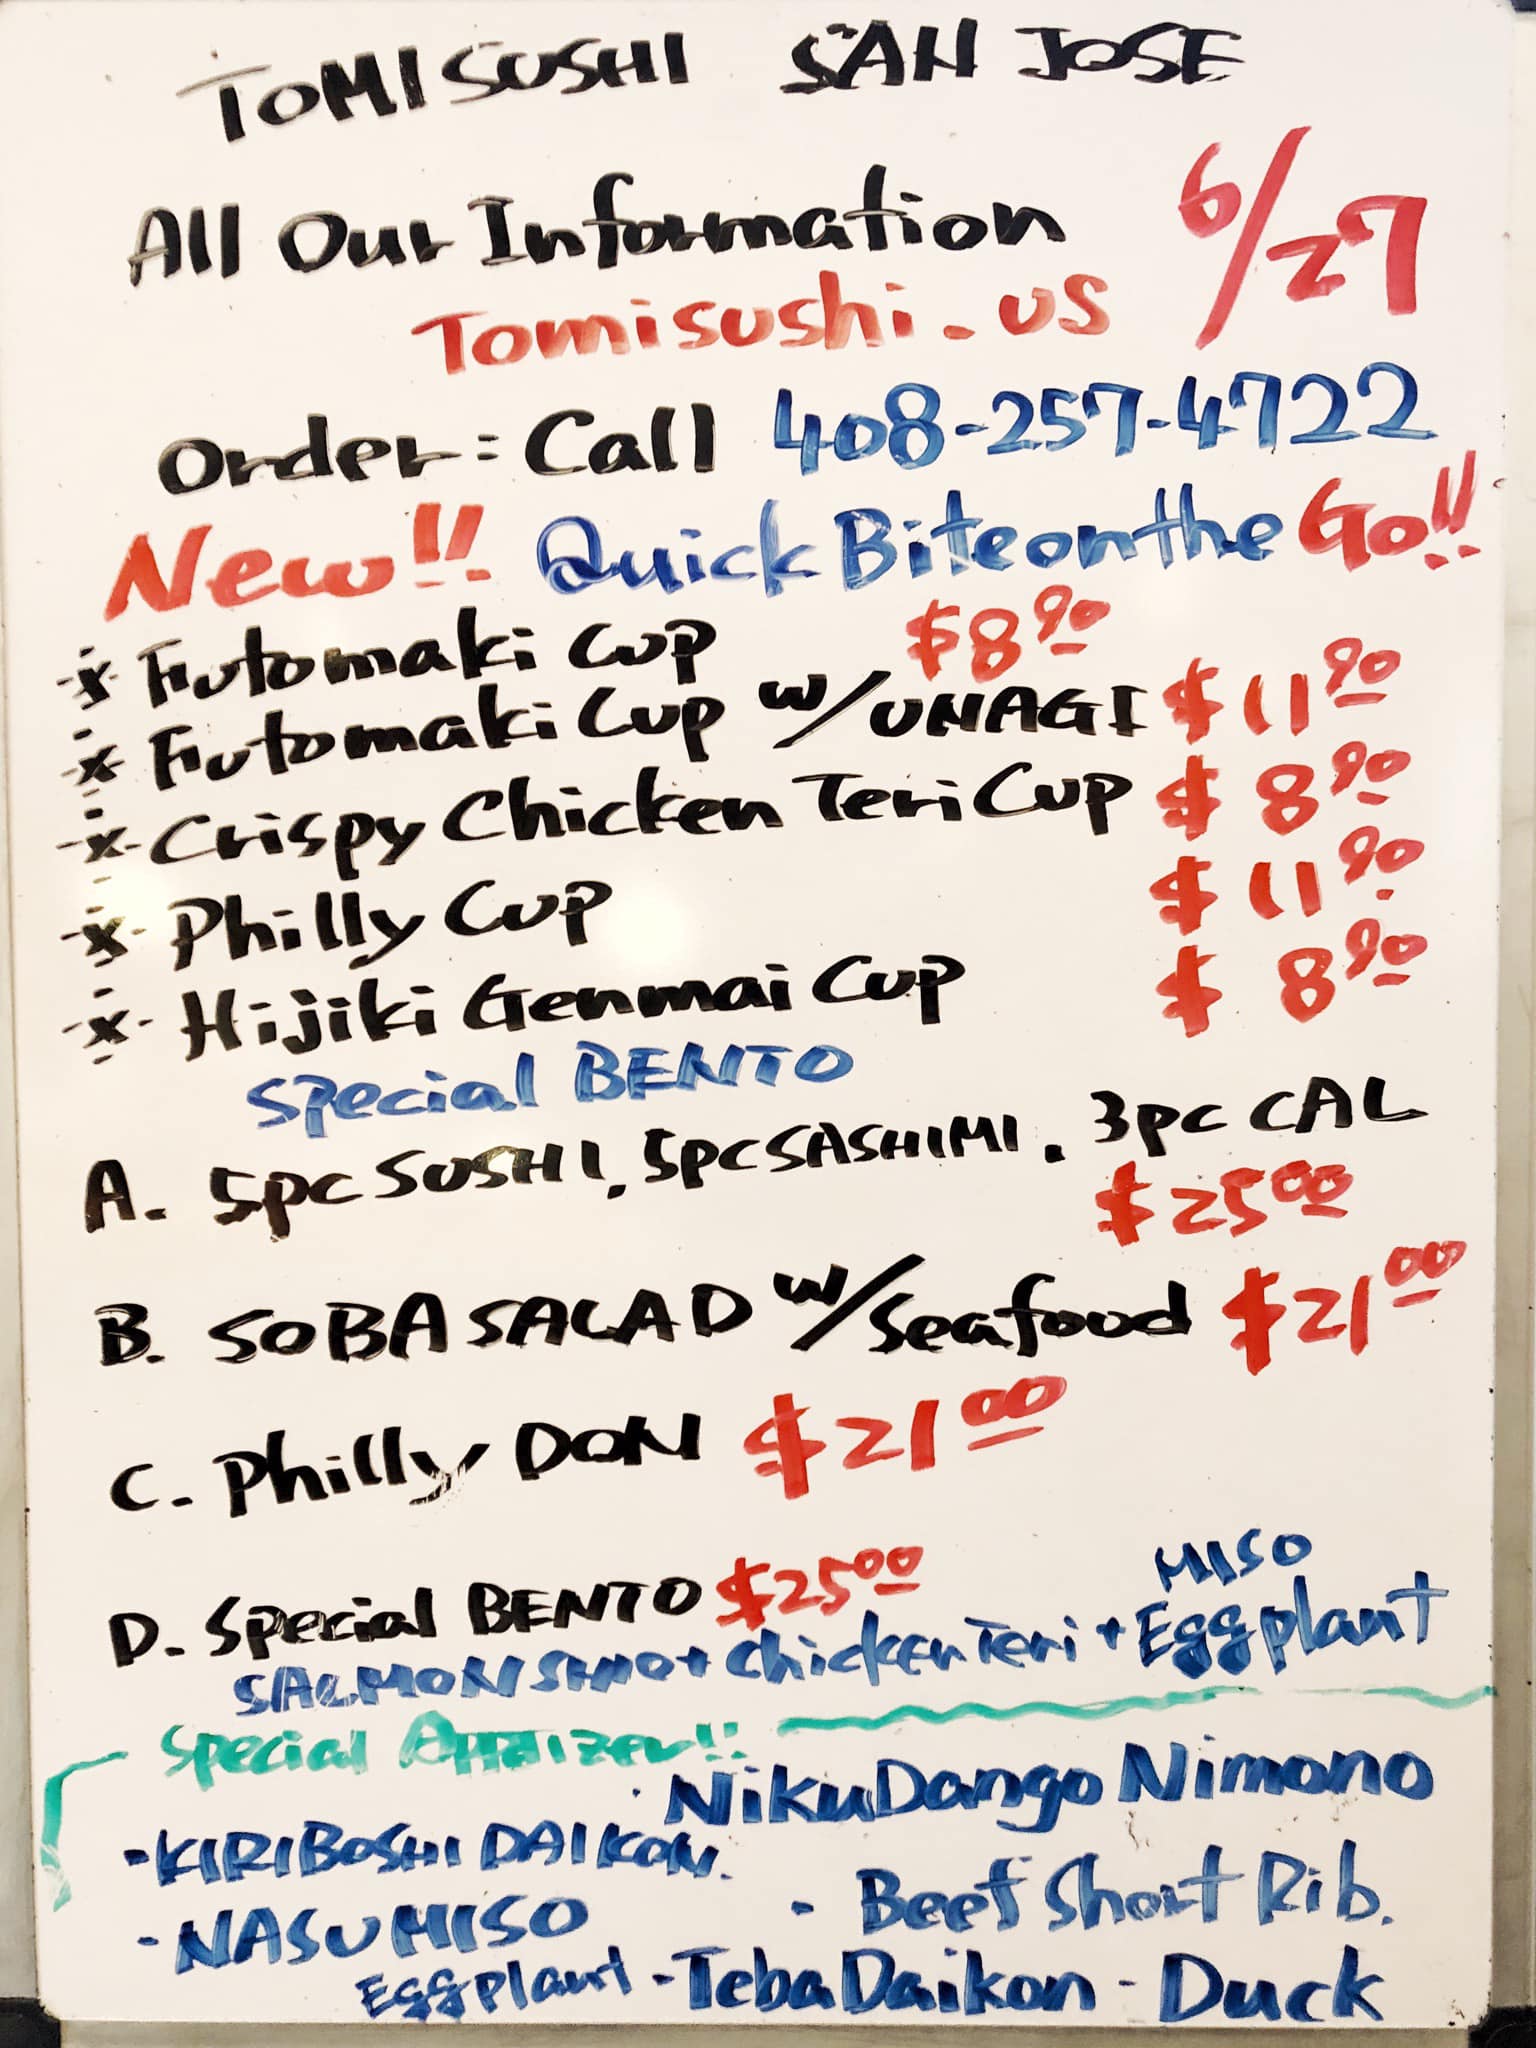 TOMISUSHI SAN JOSE
6/27
All Our Information
Tomisushi.us
Order: Call 408-257-4722
New!! Quick Bite on the Go!!
Futomaki Cup $8.90
Futomaki Cup w/UNAGI $11.90
Crispy Chicken Teri Cup $8.90
Philly Cup $11.90
Hijiki Genmai Cup $8.90
Special BENTO
A. 5pc SUSHI, 5pc SASHIMI, 3pc CAL
$25.00
B. SOBA SALAD w/Seafood $21.00
C. Philly DON $21.00
D. Special BENTO $25.00
MISO
SALMON SHIO + Chicken Teri + Eggplant
Special !!
· NikuDango Nimono
- KIRIBOSHI DAIKON.
- Beef Short Rib.
- NASU MISO
Eggplant - Teba Daikon - Duck